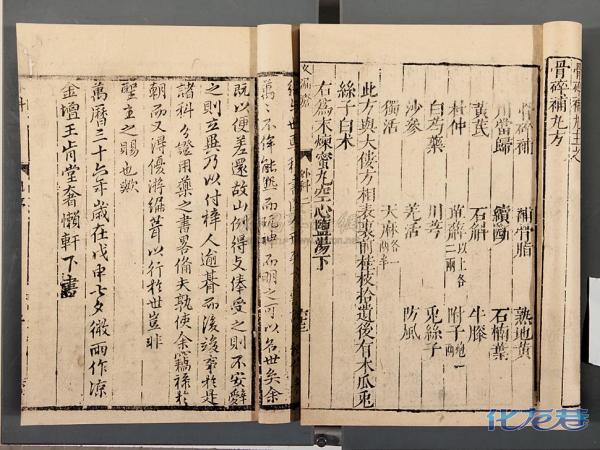 骨碎補丸方
骨碎補 補骨脂 熟地黃
川當歸 續斷 石楠葉
黃芪 石斛 牛膝
杜仲 萆薢以上各二兩 附子炮一兩
白芍藥 川芎 兎絲子
沙參 羌活 防風
獨活 天麻各一兩半
此方與大僂方相表裏前桂枝拾遺後有木瓜兎
絲子白朮
右爲末煉蜜丸空心鹽湯下
外科
萬之不侔能
而明之可以名世矣余
旣以便差還故山例得文俸受之則不安辭
之則立異乃以付梓人逾朞而後竣事於是
諸科各證用藥之書畧備夫孰使余竊祿於
朝而又得優游編葺以行於世豈非
聖主之賜也歟
萬曆三十六年歲在戊申七夕微雨作凉
金壇王肯堂奢懶軒下書
化龙巷